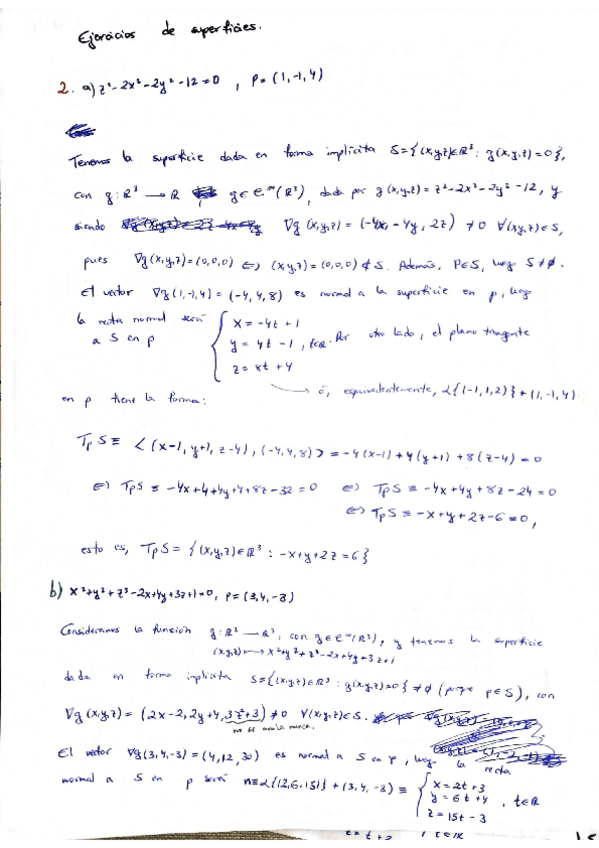 Ejercicios de superficies.
2. a) z²-2x²-2y²-12=0 , P=(1,-1,4)
Tenemos la superficie dada en forma implícita S={(x,y,z)∈ℝ³: g(x,y,z)=0},
con g:ℝ³ → ℝ g∈C^∞(ℝ³), dada por g(x,y,z)=z²-2x²-2y²-12, y
siendo ∇g(x,y,z)=(-4x,-4y,2z) ≠0 ∀(x,y,z)∈S,
pues ∇g(x,y,z)=(0,0,0) ⇔ (x,y,z)=(0,0,0)∉S. Además, P∈S, luego S≠∅.
El vector ∇g(1,-1,4)=(-4,4,8) es normal a la superficie en p, luego
la recta normal será { x=-4t+1
a S en p y=4t-1, t∈ℝ. Por otro lado, el plano tangente
z=8t+4
→ ó, equivalentemente, L{(-1,1,2)}+(1,-1,4)
en p tiene la forma:
TpS ≡ <(x-1,y+1,z-4),(-4,4,8)> = -4(x-1)+4(y+1)+8(z-4)=0
⇔ TpS ≡ -4x+4+4y+4+8z-32=0 ⇔ TpS ≡ -4x+4y+8z-24=0
⇔ TpS ≡ -x+y+2z-6=0,
esto es, TpS={(x,y,z)∈ℝ³: -x+y+2z=6}
b) x²+y²+z³-2x+4y+3z+1=0, P=(3,4,-3)
Consideramos la función g:ℝ³→ℝ, con g∈C^∞(ℝ³), y tenemos la superficie
(x,y,z)↦x²+y²+z³-2x+4y+3z+1
dada en forma implícita S={(x,y,z)∈ℝ³: g(x,y,z)=0}≠∅ (p∈S), con
∇g(x,y,z)=(2x-2,2y+4,3z²+3)≠0 ∀(x,y,z)∈S.
no se anula nunca.
El vector ∇g(3,4,-3)=(4,12,30) es normal a S en p, luego la recta
normal a S en p será n≡L{(2,6,15)}+(3,4,-3) ≡ { x=2t+3
y=6t+4, t∈ℝ
z=15t-3